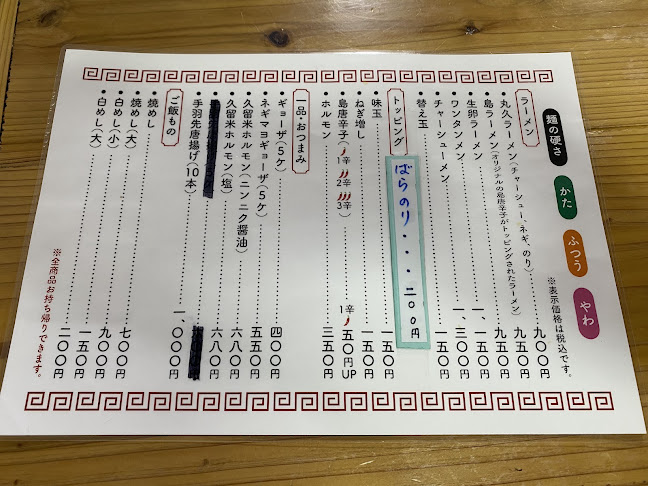 麺の硬さ かた ふつう やわ
※表示価格は税込です。
ラーメン
●丸久ラーメン(チャーシュー、ネギ、のり)……九〇〇円
●島ラーメン(オリジナルの島唐辛子がトッピングされたラーメン)……九五〇円
●生卵ラーメン……九五〇円
●ワンタンメン……一、一五〇円
●チャーシューメン……一、三〇〇円
●替え玉……一五〇円
トッピング
ばらのり・・・二〇〇円
●味玉……一五〇円
●ねぎ増し……一五〇円
●島唐辛子(1辛 2辛 3辛)……1辛 五〇円UP
●ホルモン……三五〇円
一品・おつまみ
●ギョーザ(5ケ)……四〇〇円
●ネギマヨギョーザ(5ケ)……五五〇円
●久留米ホルモン(ニンニク醤油)……六八〇円
●久留米ホルモン(塩)……六八〇円
●手羽先唐揚げ(10本)……一、〇〇〇円
ご飯もの
●焼めし……七〇〇円
●焼めし(大)……九〇〇円
●白めし(小)……一五〇円
●白めし(大)……二〇〇円
※全商品お持ち帰りできます。